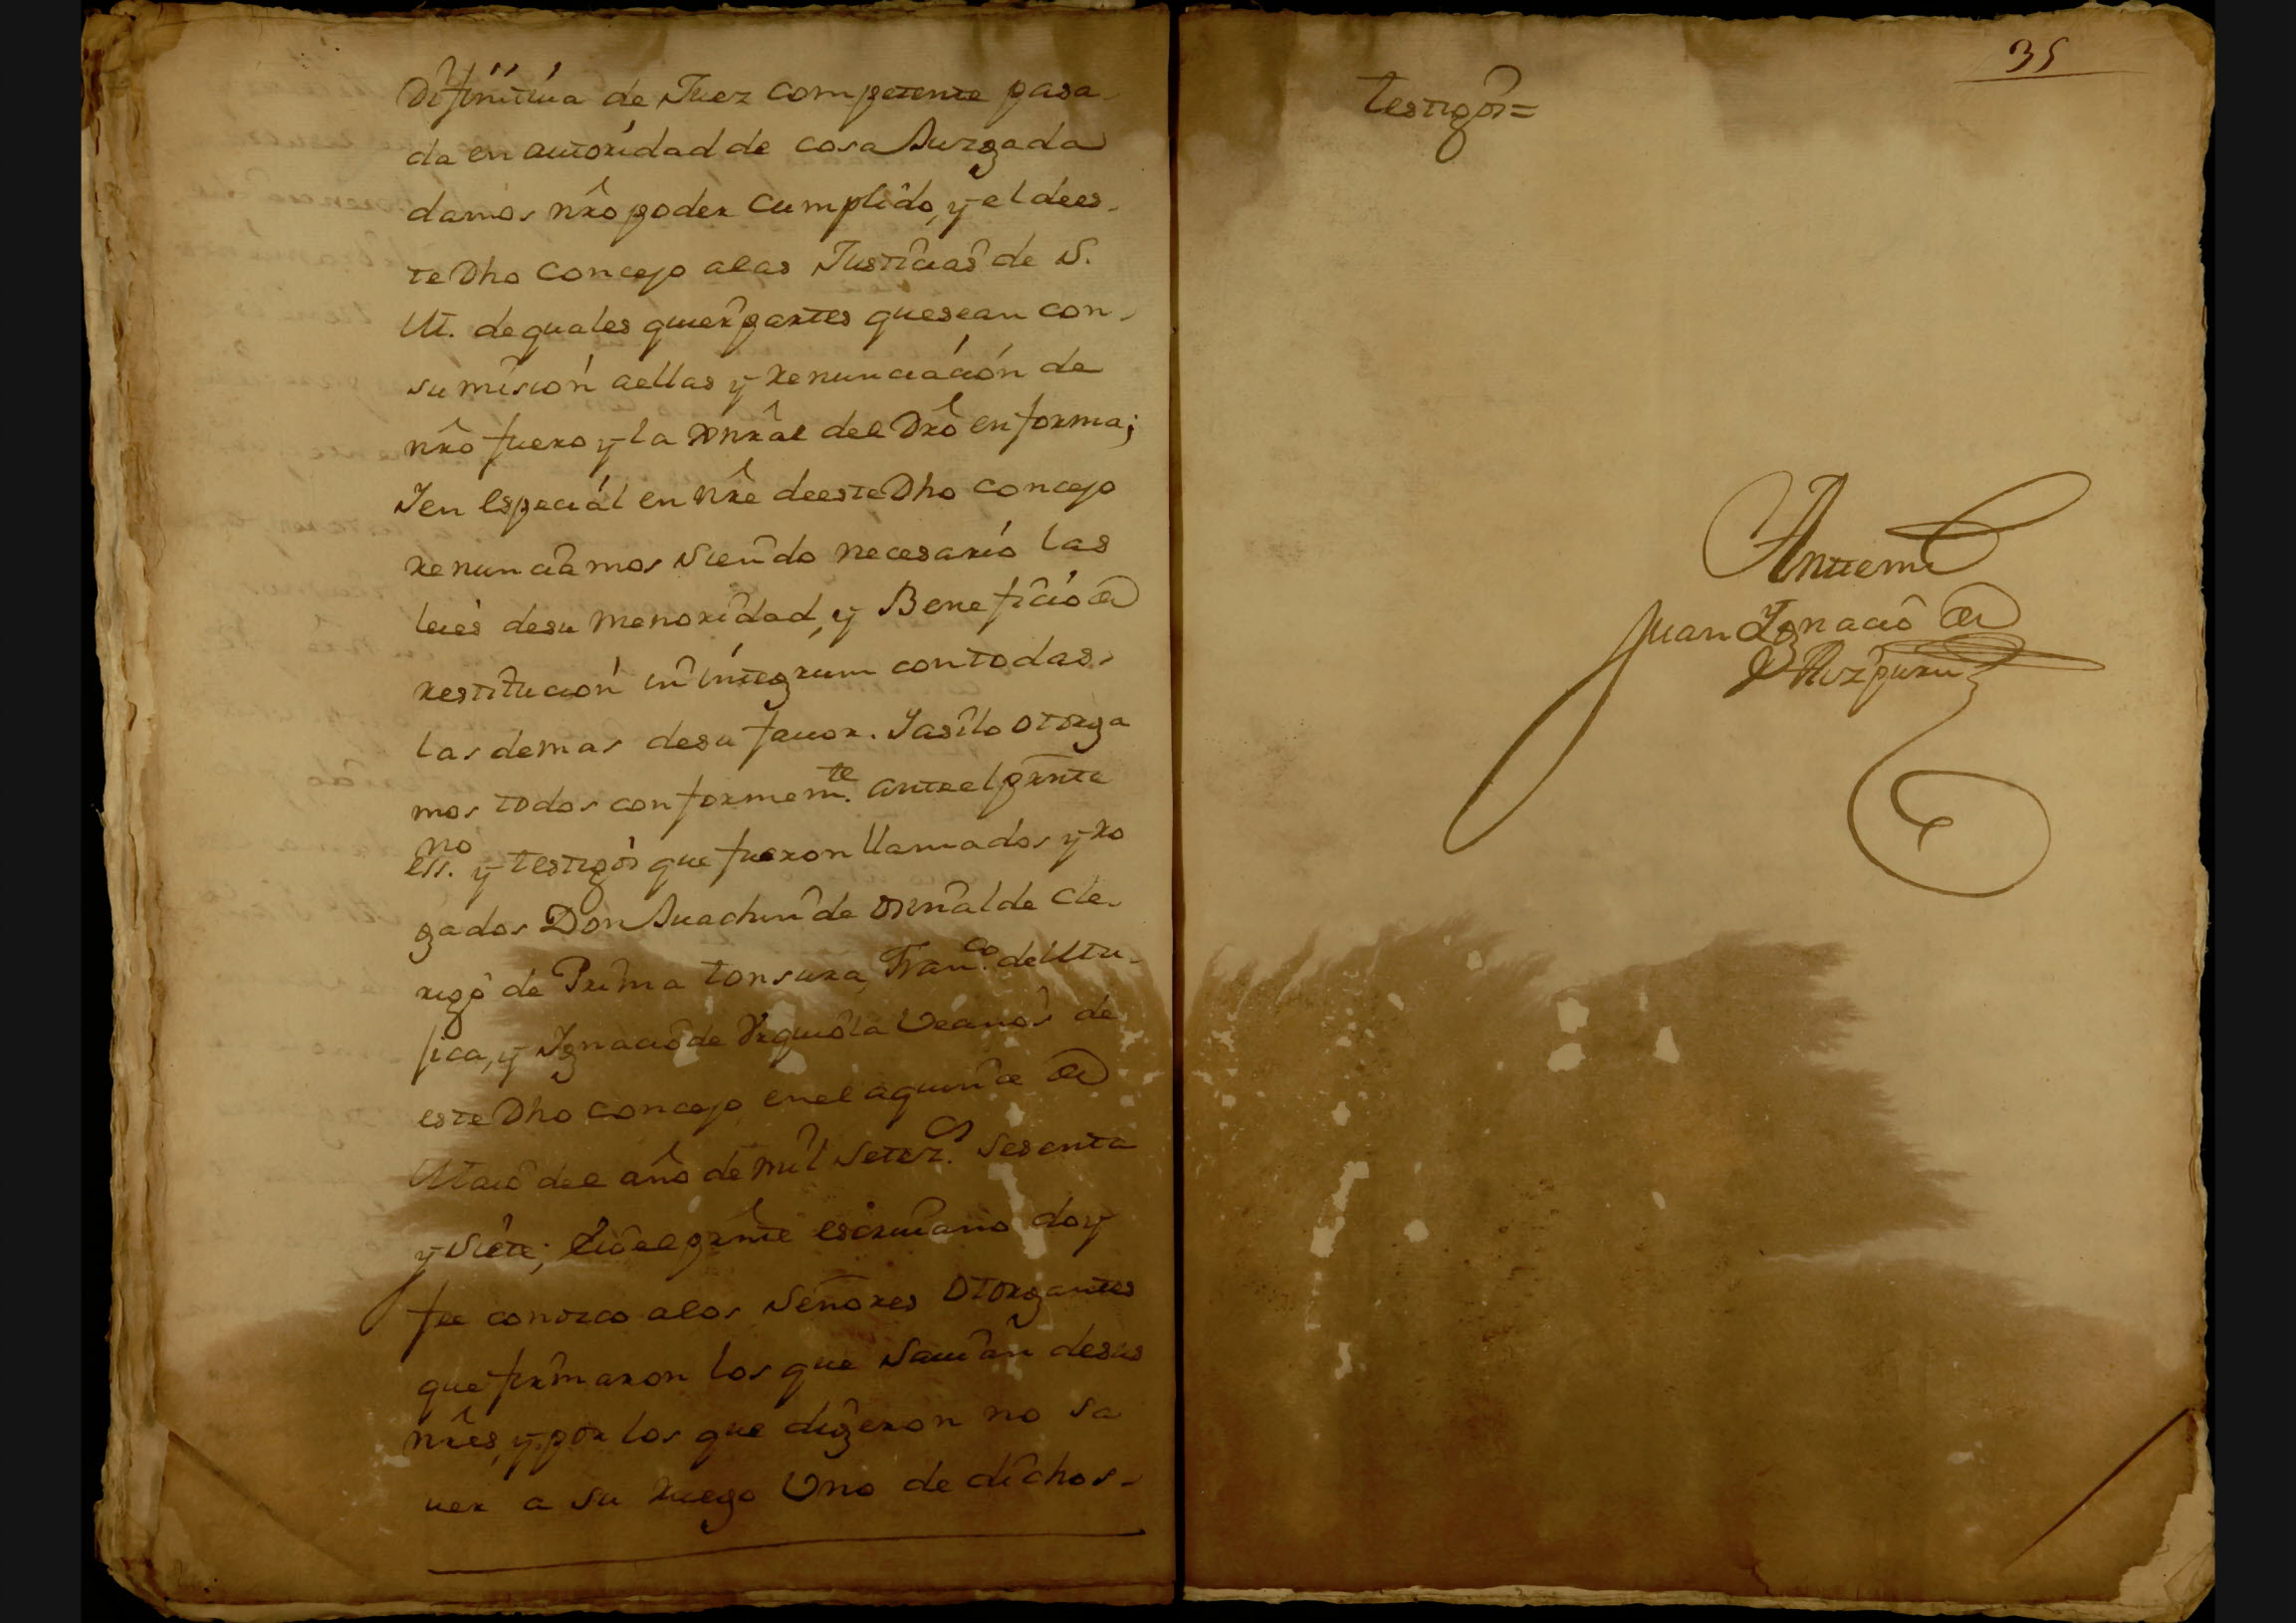 Difinitiua de Juez competente pasa-
da en autoridad de cosa Juzgada
damos nrô poder cumplido, y el dees-
te Dho concejo alas Justicias de S.
M. de quales quier partes que sean con-
sumision aellas y Renunciación de
nrô fuero y la Xnrâl del Drô en forma;
Y en Especiál en Nrê deeste Dho concejo
Renunciamos Siendo necesario las
leies desu menoridad, y Beneficio de
restitucion in integrum con todas
las demas desu fauor. Y asi lo otorga
mos todos conformemte. ante el prnte
essno. y testigos que fueron llamados y Ro
gados Don Juachin de Orinalde Cle-
rigo de Prima tonsura, Franco. de Mu-
jica, y Ignacio de Vrquiola Vecinos de
este Dho concejo en el a quince de
Maio del año de mil Setezs. Sesenta
y Siete; E io el prnte escriuano doy
fee conozco alos Señores Otorgantes
que firmaron los que Sauian desus
nrês, y por los que digeron no sa
uer a su Ruego Vno de dichos-
35
testigos=
Antemi
Juan Ignacio de
Aizpuru